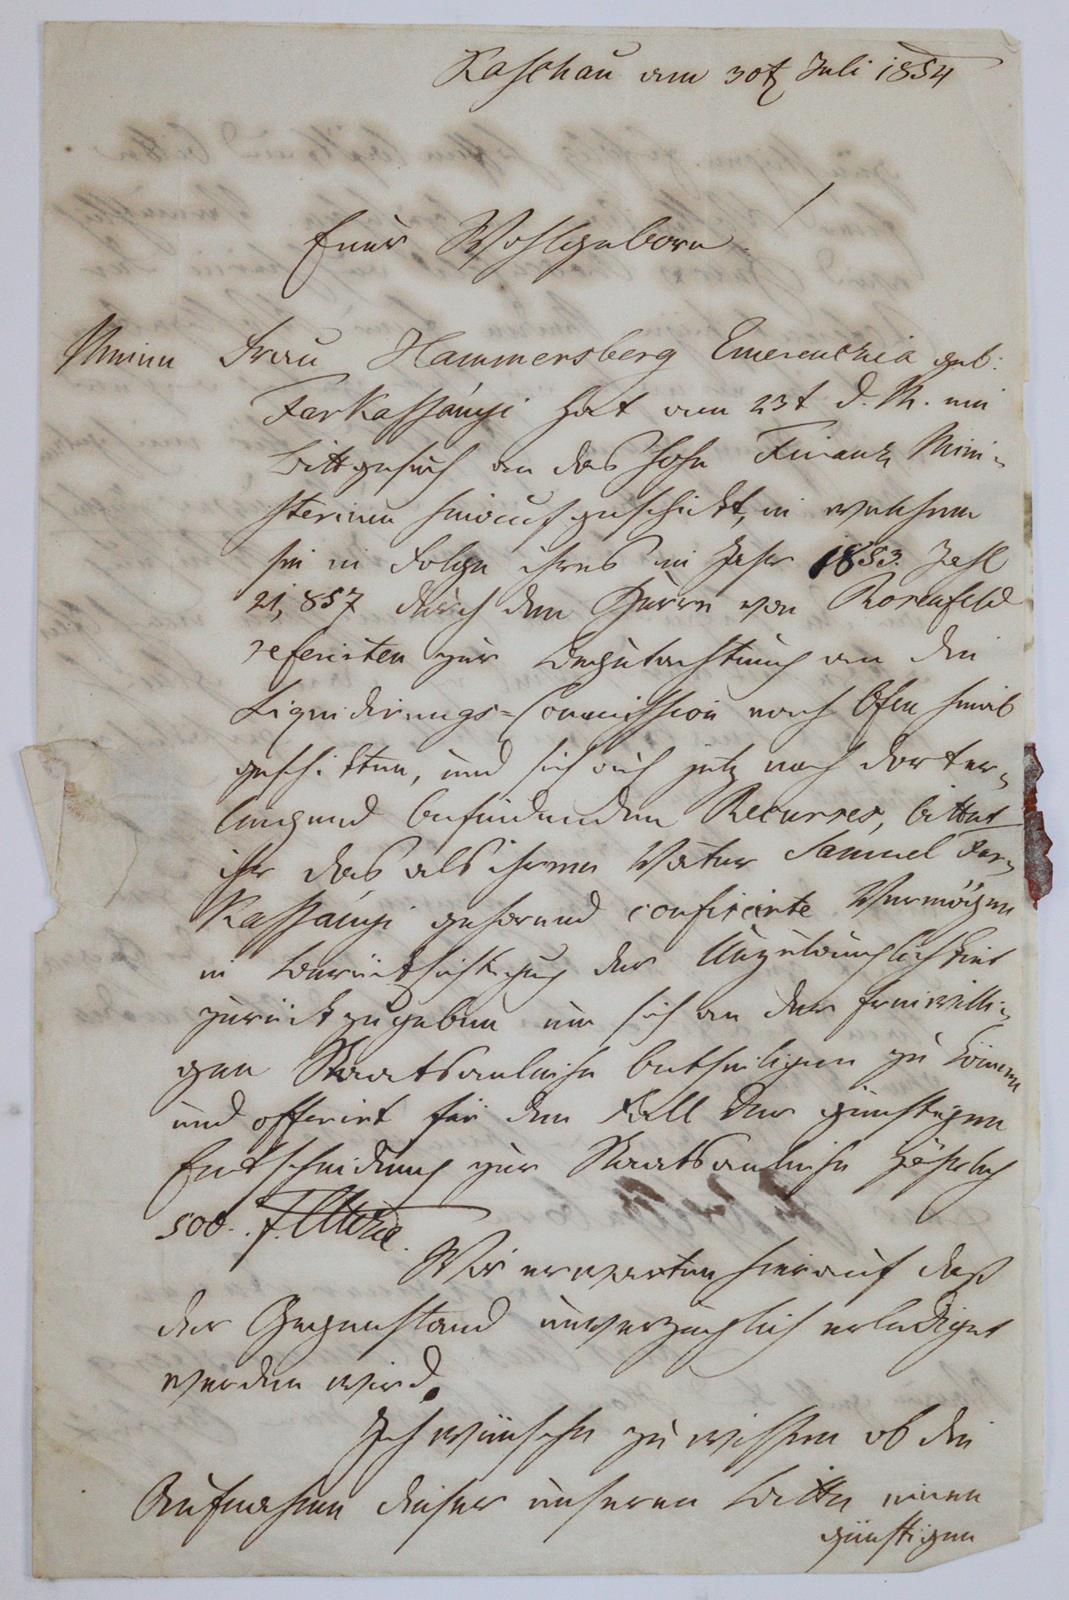 Kaschau am 30t Juli 1854
Euer Wohlgeboren!
Meine Frau Hammersberg Emerentzia geb:
Farkassányi hat am 23t d. M. ein
Bittgesuch an das hohe Finanz Mini-
sterium hinauf geschickt, in welchem
sie in Folge ihres im Jahr 1853. Zahl
21,857 durch den Herrn von Rosenfeld
referirten zur Begutachtung an die
Liquidirungs-Commission nach Ofen hinab
geschikten, und sich auch jetz noch dort er-
liegend befindenden Recurses, bittet
ihr das als ihrem Vater Samuel Far-
kassányi gehörend confiscirte Vermögen
in Berücksichtigung der Unzulänglichkeit
zurückzugeben um sich an der freiwilli-
gen Staatsanleihe betheiligen zu können
und offerirt für den Fall der günstigen
Entscheidung zur Staatsanleihe jährlich
500. f.
Wir erwarten hierauf daß
der Gegenstand unverzüglich erlediget
werden wird.
Ich wünsche zu wissen ob die
Aufnahme dieser unserer Bitte einen
günstigen